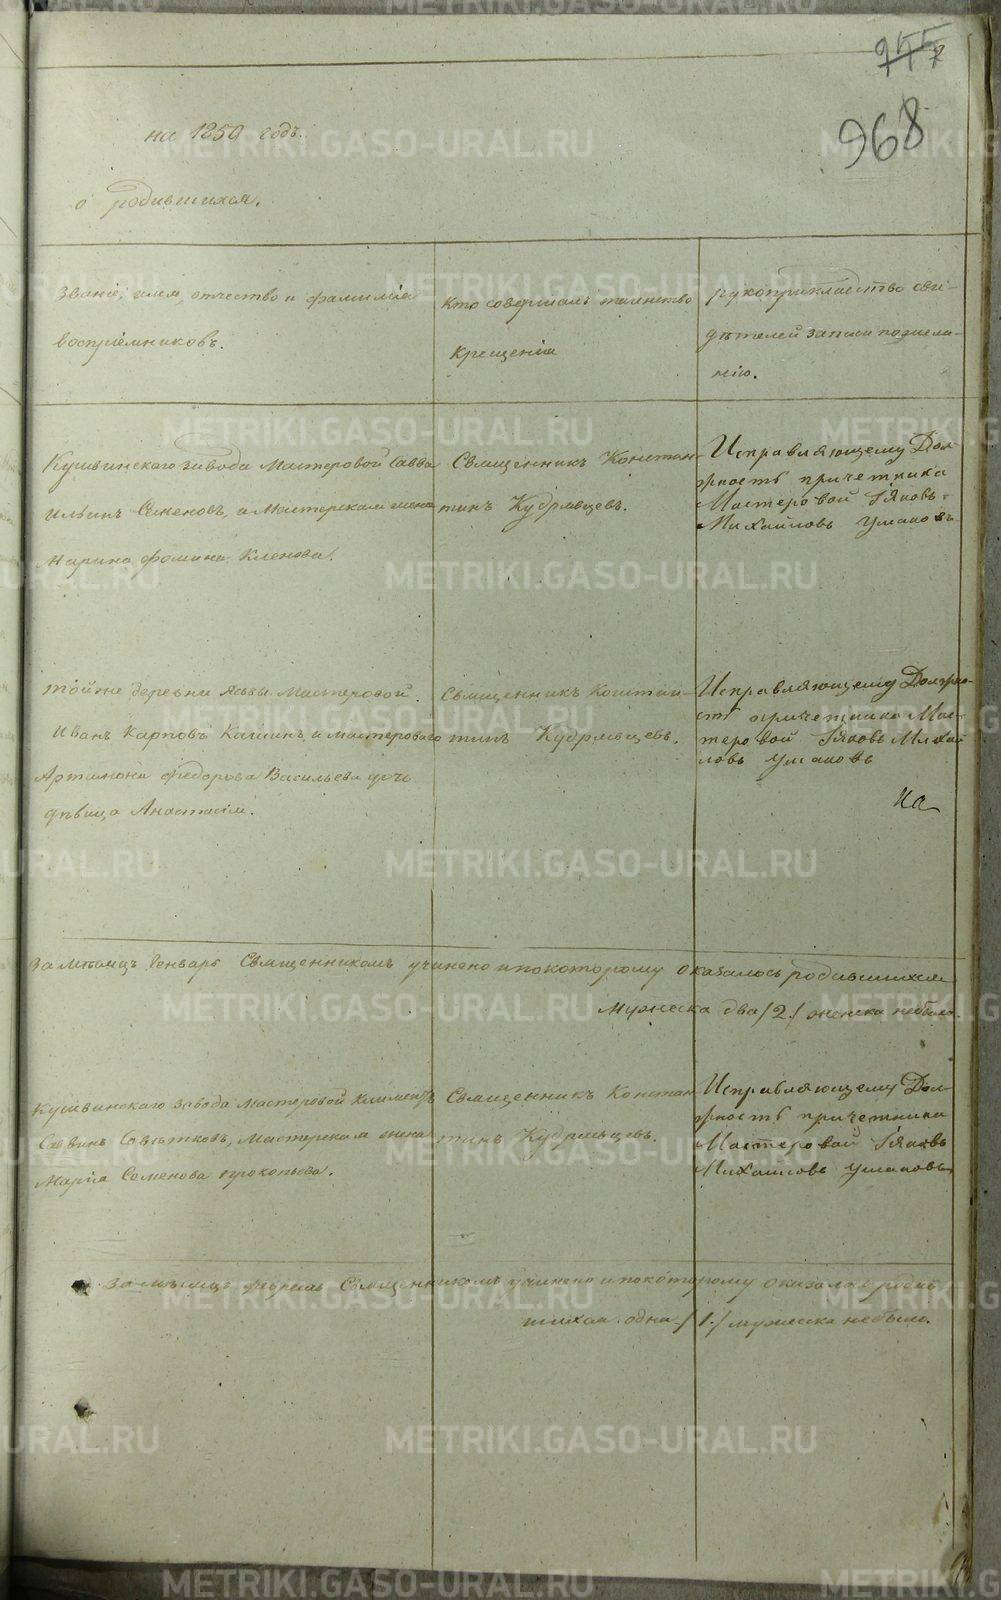 968
на 1850 годъ.
о родившихся.
Званіе, имя, отчество и фамилія
воспріемниковъ.
Кто совершалъ таинство
крещенія
рукоприкладство сви-
дѣтелей записи по жела-
нію.
Кушвинскаго завода Мастеровой Савва
Ильинъ Семеновъ, а Мастерская жена
Марина Фомина Кленова.
Священникъ Констан-
тинъ Кудрявцевъ.
Исправляющему Дол-
жность причетника
Мастеровой Іяковъ
Михайловъ Ушаковъ
Тойже деревни Асьвы Мастеровой
Иванъ Карповъ Кашинъ, и мастероваго
Артамона Федорова Васильева дочь
дѣвица Анастасія.
Священникъ Констан-
тинъ Кудрявцевъ.
Исправляющему Должно-
сть причетника Мас-
теровой Іяковъ Михай
ловъ Ушаковъ
На
За мѣсяцъ Генварь Священникомъ учинено и по которому оказалось родившихся
мужеска два /2./ женска небыло.
Кушвинскаго завода мастеровой Климентъ
Саввинъ Совѣтковъ, Мастерская жена
Марія Семенова Прокопьева.
Священникъ Констан
тинъ Кудрявцевъ.
Исправляющему Дол-
жность причетника
Мастеровой Іяковъ
Михайловъ Ушаковъ
За мѣсяцъ февраль Священникомъ учинено и по которому оказалось родив
шихся одна /1./ мужеска небыло.
METRIKI.GASO-URAL.RU